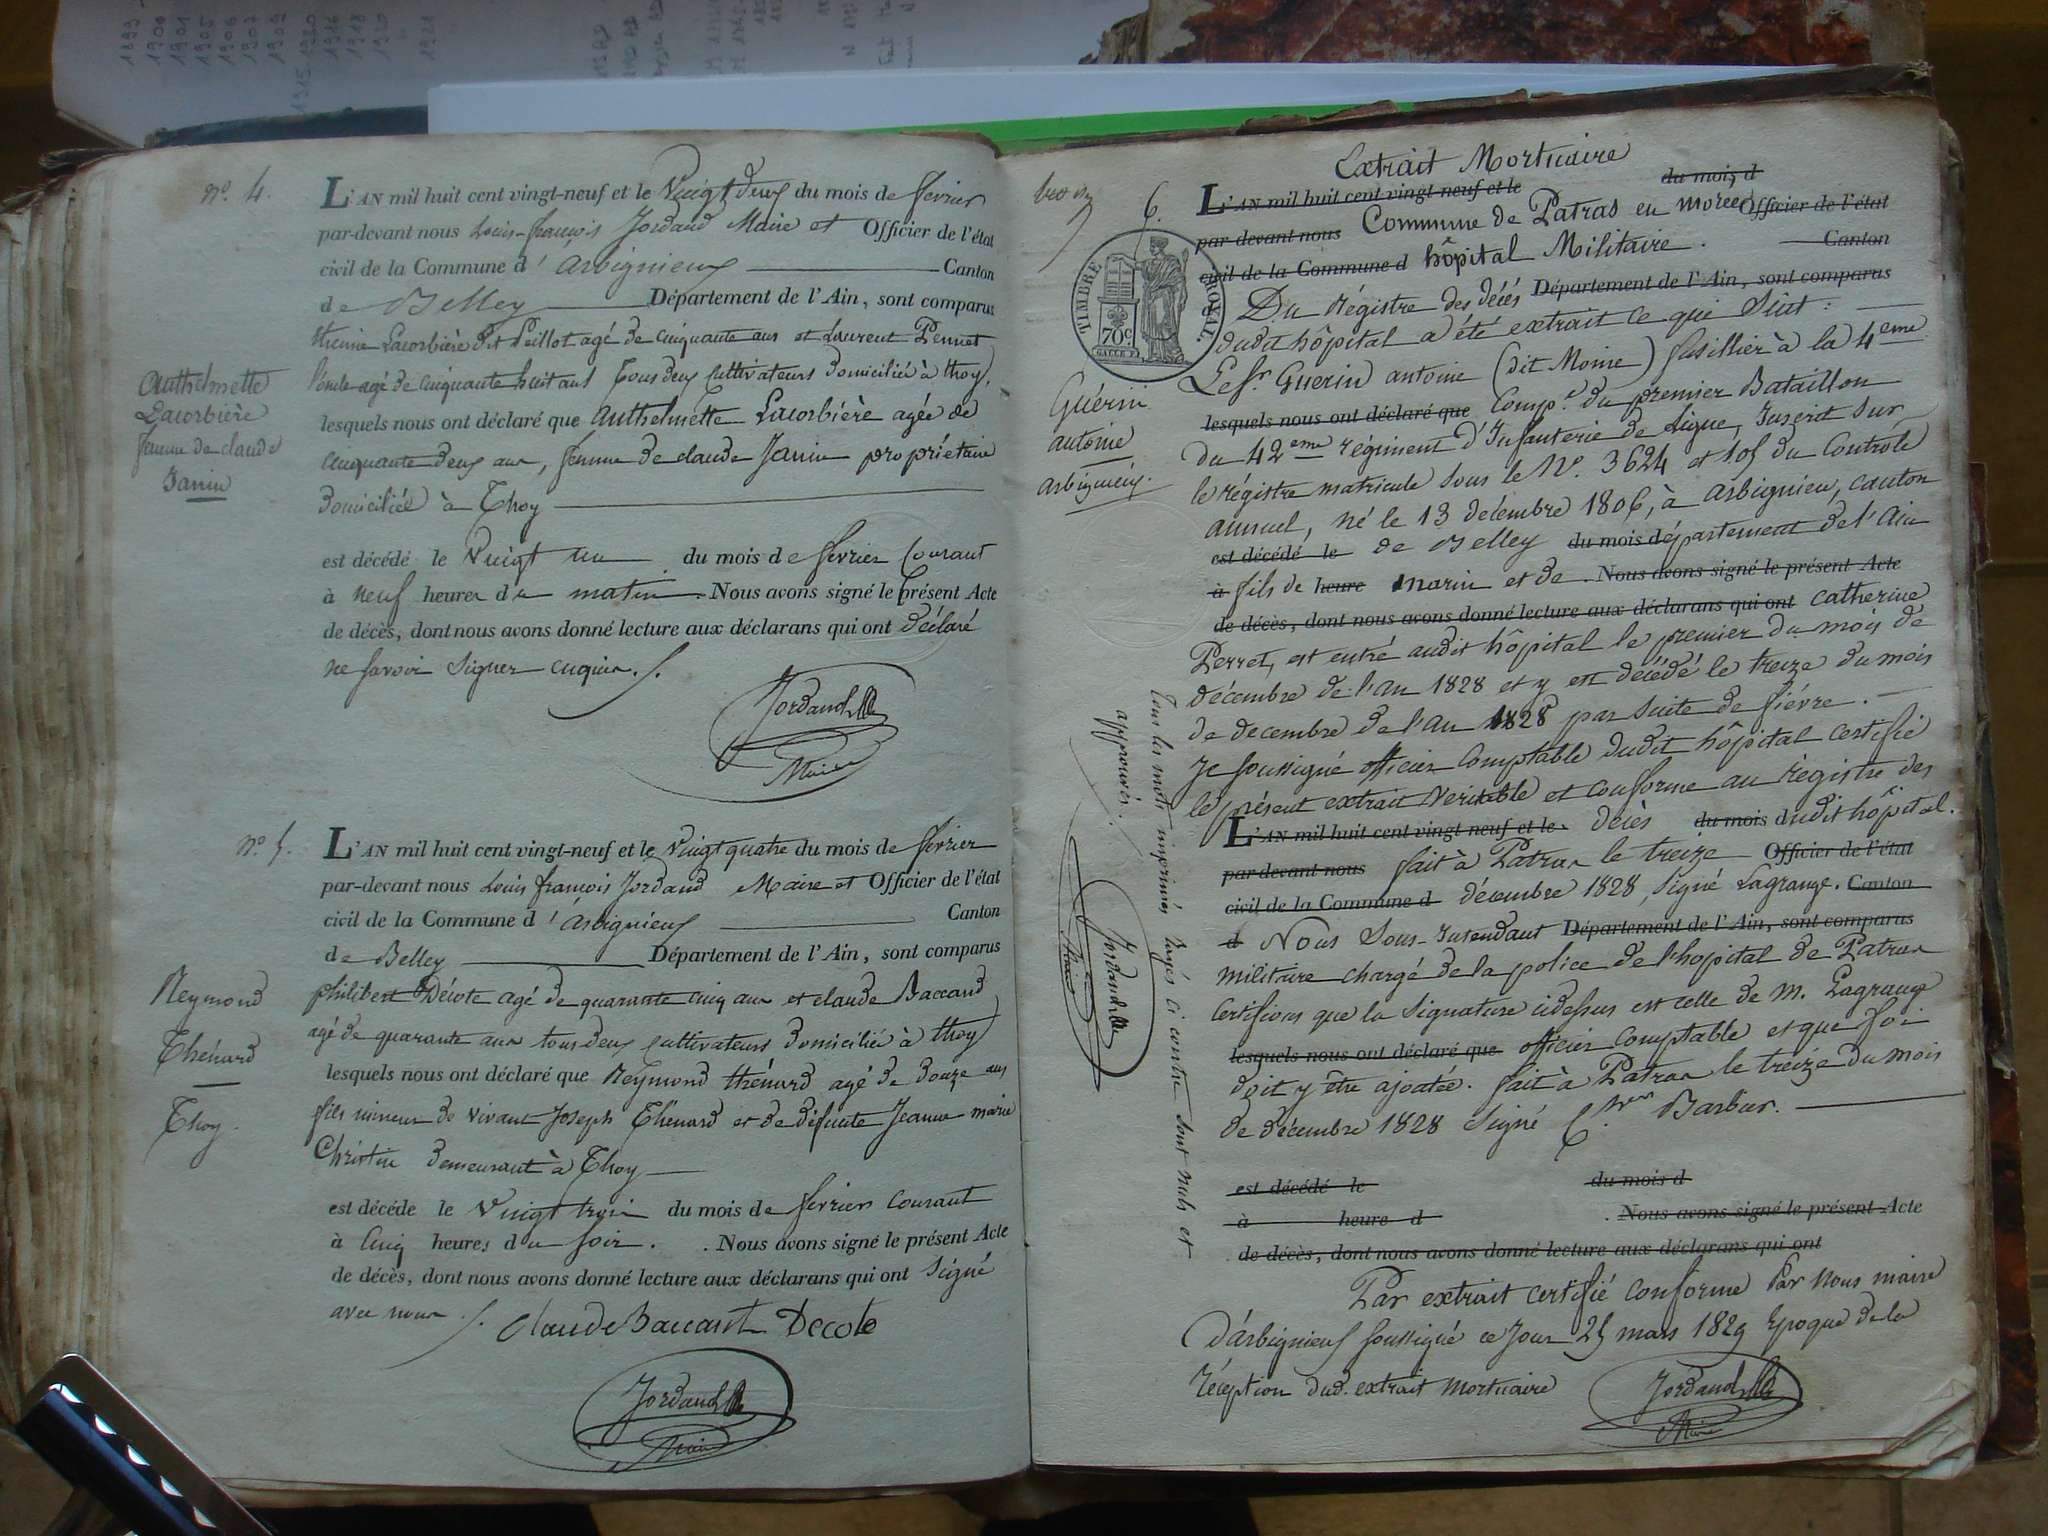 1899
1900
1901
1905
1906
1907
1909
1915-1920
1916
1918
1920
1921
n° 4.
L'AN mil huit cent vingt-neuf et le vingt deux du mois de fevrier
par-devant nous Louis-françois Jordand Maire et Officier de l'état
civil de la Commune d'arbignieux Canton
de Belley Département de l'Ain, sont comparus
Etienne Lacorbière dit Peillot agé de cinquante ans et Laurent Pennet
l'oncle agé de cinquante huit ans tous deux cultivateurs domicilié à thoy,
lesquels nous ont déclaré que Anthelmette Lacorbière agée de
cinquante deux ans, femme de claude Janin propriétaire
domiciliée à Thoy
Anthelmette
Lacorbière
femme de claude
Janin
est décédé le vingt un du mois de fevrier courant
à neuf heures du matin. Nous avons signé le présent Acte
de décès, dont nous avons donné lecture aux déclarans qui ont déclaré
ne savoir signer enquis ./.
Jordand
Maire
n° 5.
L'AN mil huit cent vingt-neuf et le vingt quatre du mois de fevrier
par-devant nous Louis françois Jordand Maire et Officier de l'état
civil de la Commune d'arbignieux Canton
de Belley Département de l'Ain, sont comparus
philibert Décote agé de quarante cinq ans et claude Baccard
agé de quarante ans tous deux cultivateurs domicilié à thoy
lesquels nous ont déclaré que Reymond thénard agé de douze ans
fils mineur de vivant Joseph Thénard et de défunte Jeanne marie
Christin demeurant à Thoy
Reymond
Thénard
Thoy.
est décédé le vingt trois du mois de fevrier courant
à cinq heures du soir. . Nous avons signé le présent Acte
de décès, dont nous avons donné lecture aux déclarans qui ont signé
avec nous ./. Claude Baccard Decote
Jordand
Maire
Extrait Mortuaire
6.
L'AN mil huit cent vingt-neuf et le du mois d
par-devant nous Commune de Patras en morée Officier de l'état
civil de la Commune d hôpital Militaire. Canton
Du régistre des décés Département de l'Ain, sont comparus
dudit hôpital a été extrait ce que suit :
Le Sr. Guerin antoine (dit Moine) fusillier à la 4eme
lesquels nous ont déclaré que Comp.e du premier Bataillon
du 42eme régiment d'Infanterie de Ligne, Inscrit sur
le régistre matricule sous le N°. 3624 et 105 du Controle
annuel, né le 13 décembre 1806, à arbignieu, canton
est décédé le de Belley du mois département de l'ain
à fils de heure marin et de . Nous avons signé le présent Acte
de décès, dont nous avons donné lecture aux déclarans qui ont catherine
Perret, est entré audit hôpital le premier du mois de
décembre de l'an 1828 et y est décédé le treize du mois
de decembre de l'an 1828 par suite de fièvre.
Je soussigné officier Comptable dudit hôpital certifie
le présent extrait véritable et conforme au régistre des
L'AN mil huit cent vingt-neuf et le décès du mois dudit hôpital.
par-devant nous fait à Patras le treize Officier de l'état
civil de la Commune d décembre 1828, signé Lagrange. Canton
d Nous Sous-Intendant Département de l'Ain, sont comparus
militaire chargé de la police de l'hopital de Patras
Certifions que la signature cidessus est celle de m. Lagrange
lesquels nous ont déclaré que officier comptable et que foi
doit y être ajoutée. fait à Patras le treize du mois
de décembre 1828 signé Barbier.
TIMBRE ROYAL.
70c
Guérin
antoine
arbignieux.
Tous les mots imprimés rayés ci contre sont nuls et
approuvés.
Jordand
Maire
est décédé le du mois d
à heure d . Nous avons signé le présent Acte
de décès, dont nous avons donné lecture aux déclarans qui ont
Par extrait certifié conforme Par nous maire
D'arbignieux soussigné ce jour 25 mars 1829 époque de la
réception dud. extrait mortuaire
Jordand
Maire